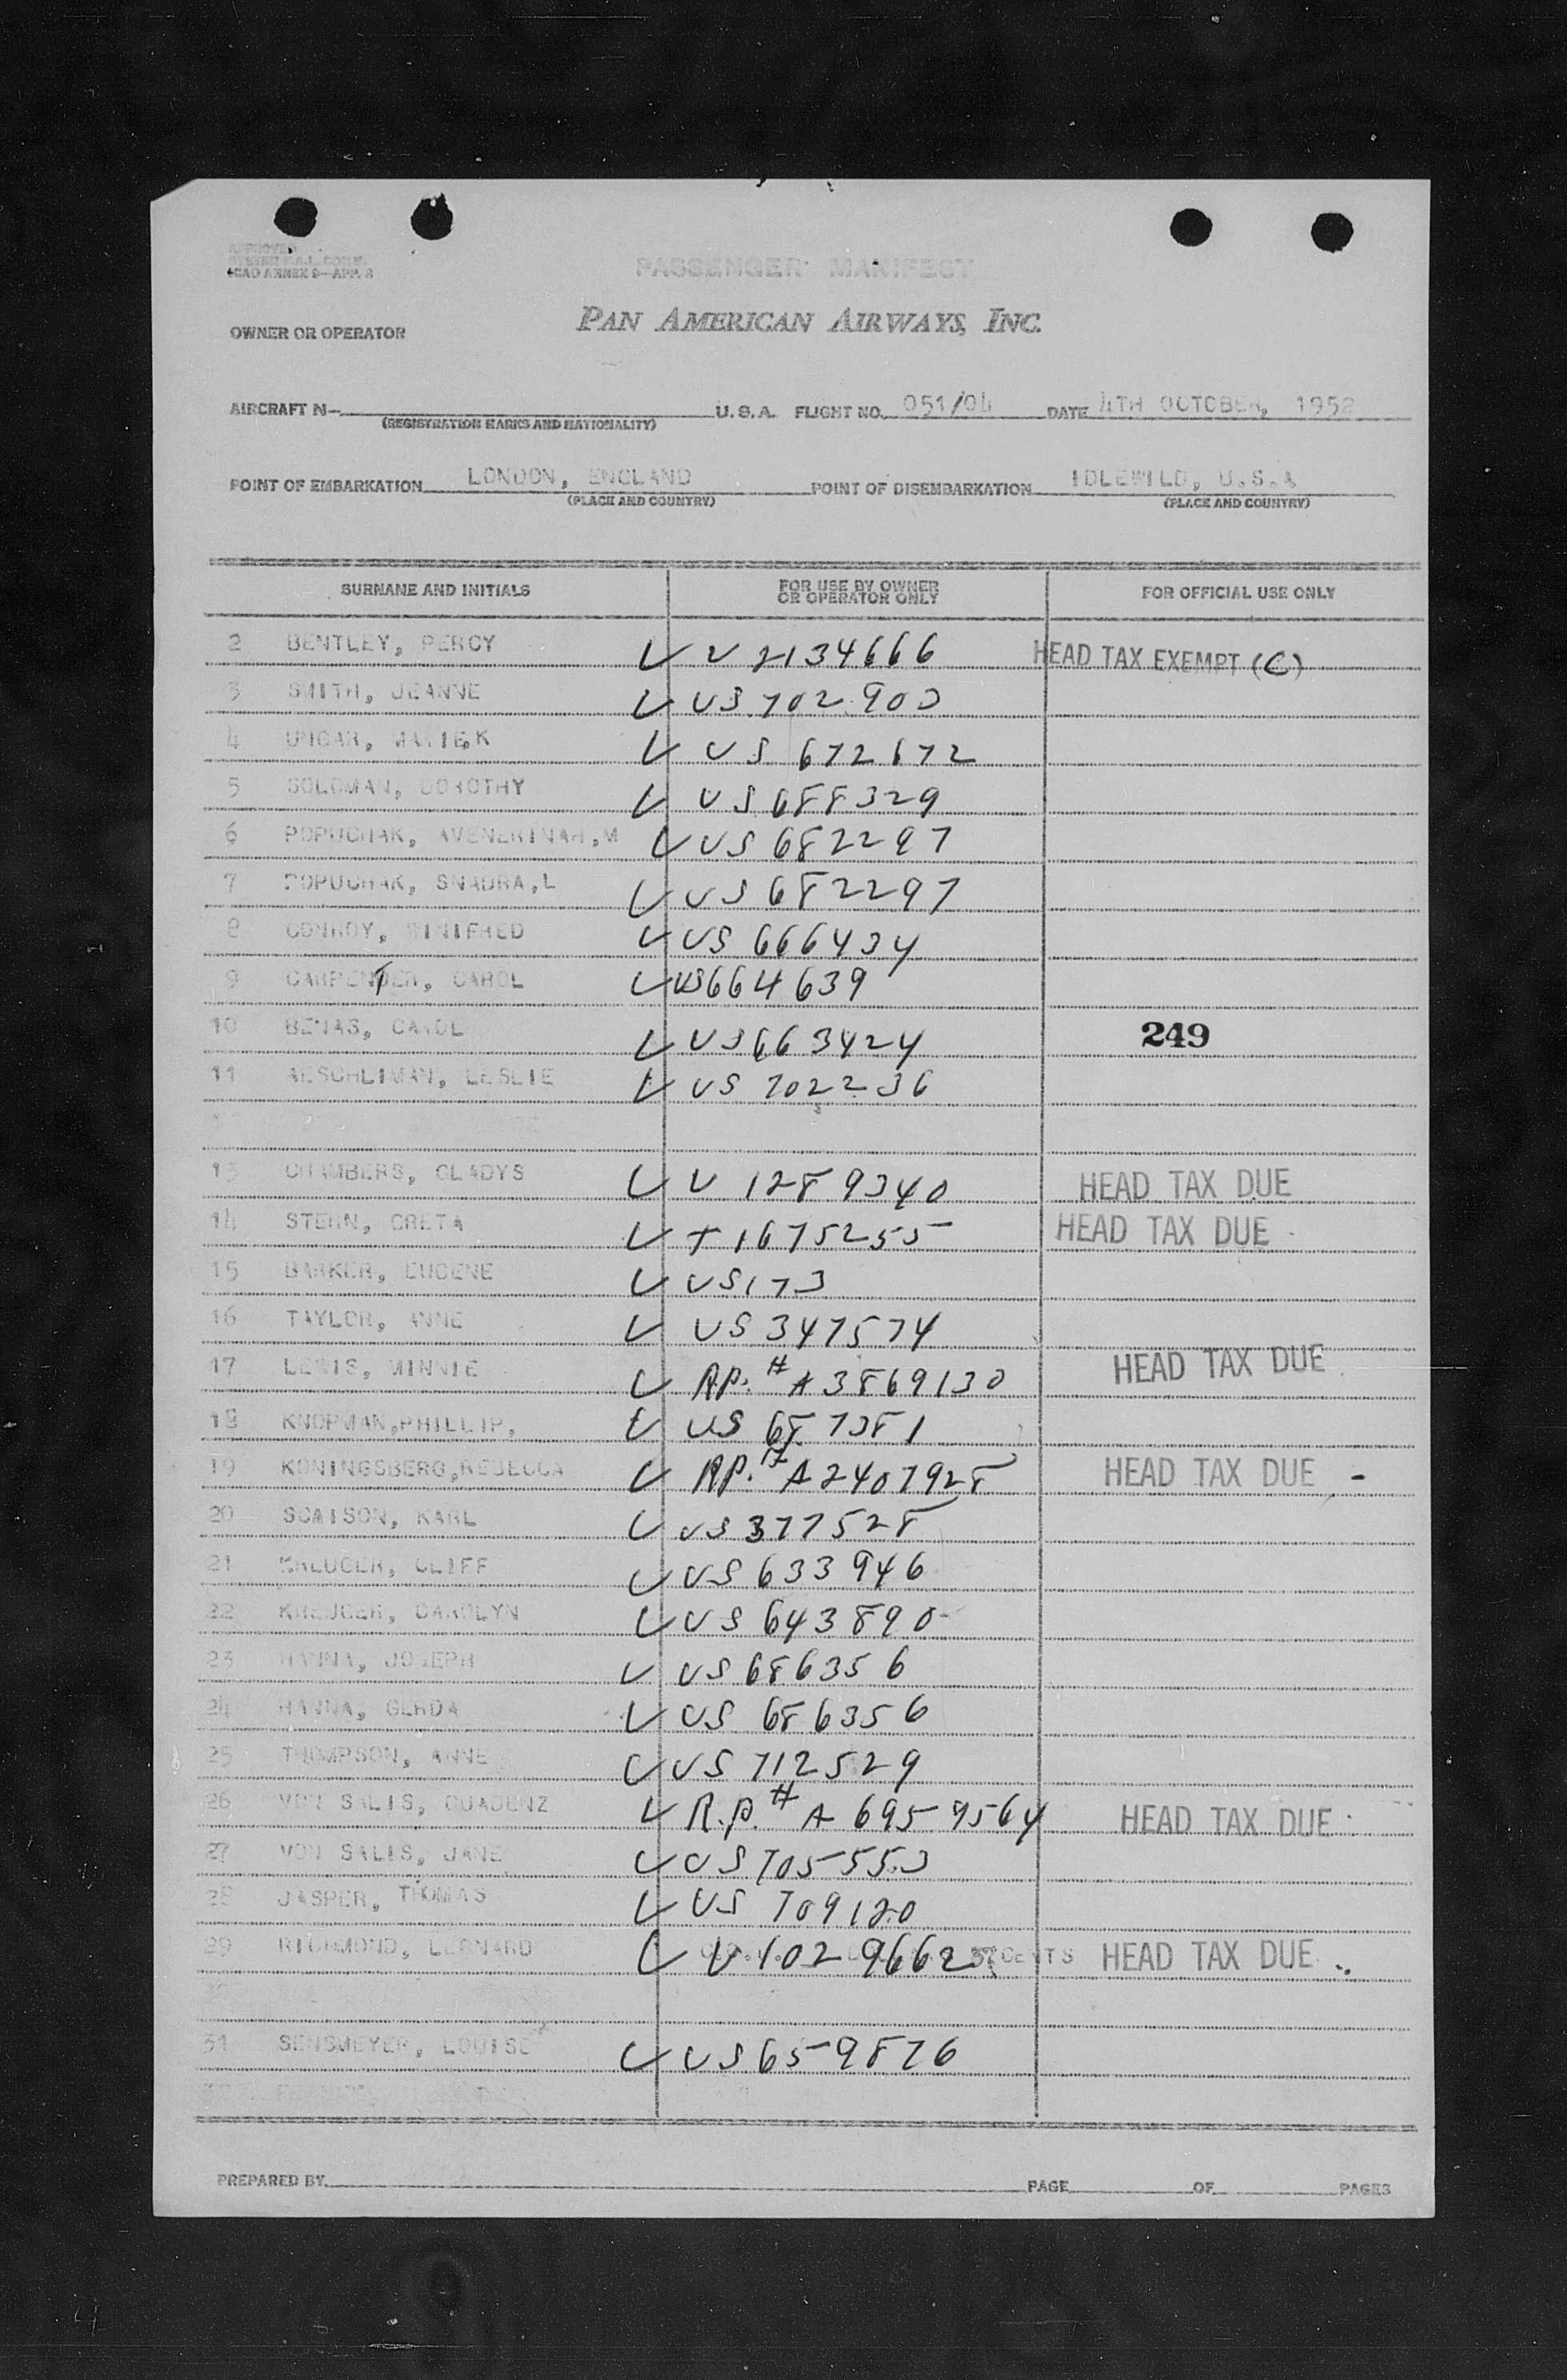 APPROVED
ICAO ANNEX 9—APP. 2
PASSENGER MANIFEST
OWNER OR OPERATOR PAN AMERICAN AIRWAYS, INC.
AIRCRAFT N— U.S.A. FLIGHT NO. 051/04 DATE 4TH OCTOBER, 1952
(REGISTRATION MARKS AND NATIONALITY)
POINT OF EMBARKATION LONDON, ENGLAND POINT OF DISEMBARKATION IDLEWILD, U.S.A
(PLACE AND COUNTRY) (PLACE AND COUNTRY)
SURNAME AND INITIALS FOR USE BY OWNER OR OPERATOR ONLY FOR OFFICIAL USE ONLY
2 BENTLEY, PERCY V 2134666 HEAD TAX EXEMPT (C)
3 SMITH, JEANNE US 702900
4 UNGAR, K US 672672
5 SOLOMAN, DOROTHY US 688329
6 POPUCHAK, AVENERINAH,M US 682297
7 POPUCHAK, SNADRA,L US 682297
8 CONROY, WINIFRED US 666434
9 CARPENTER, CAROL US664639
10 BENAS, CAROL US663424 249
11 AESCHLIMAN, LESLIE US 702236
13 CHAMBERS, GLADYS V 1289340 HEAD TAX DUE
14 STERN, GRETA T 1675255 HEAD TAX DUE
15 BARKER, EUGENE US173
16 TAYLOR, ANNE US 347574
17 LEWIS, MINNIE R.P. # A3869130 HEAD TAX DUE
18 KNOPMAN,PHILLIP, US 687381
19 KONINGSBERG,REBECCA R.P. # A2407928 HEAD TAX DUE
20 KARL US 377528
21 KREUGER, CLIFF US 633946
22 KREUGER, CAROLYN US 643890
23 HANNA, JOSEPH US 686356
24 HANNA, GERDA US 686356
25 THOMPSON, ANNE US 712529
26 VON SALIS, GUADENZ R.P. # A 6959564 HEAD TAX DUE
27 VON SALIS, JANE US 705553
28 JASPER, THOMAS US 709120
29 RICHMOND, LEONARD V 1029662 CENTS HEAD TAX DUE
31 SENSMEYER, LOUISE US 659876
PREPARED BY PAGE OF PAGES